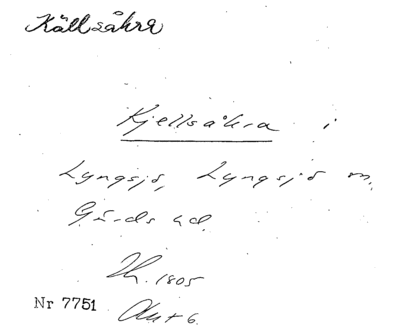 Källsåkra
Kjellsåkra i
Lyngsjö, Lyngsjö m.
Gärds hd.
Sk. 1805
Nr 7751 Akt 6.